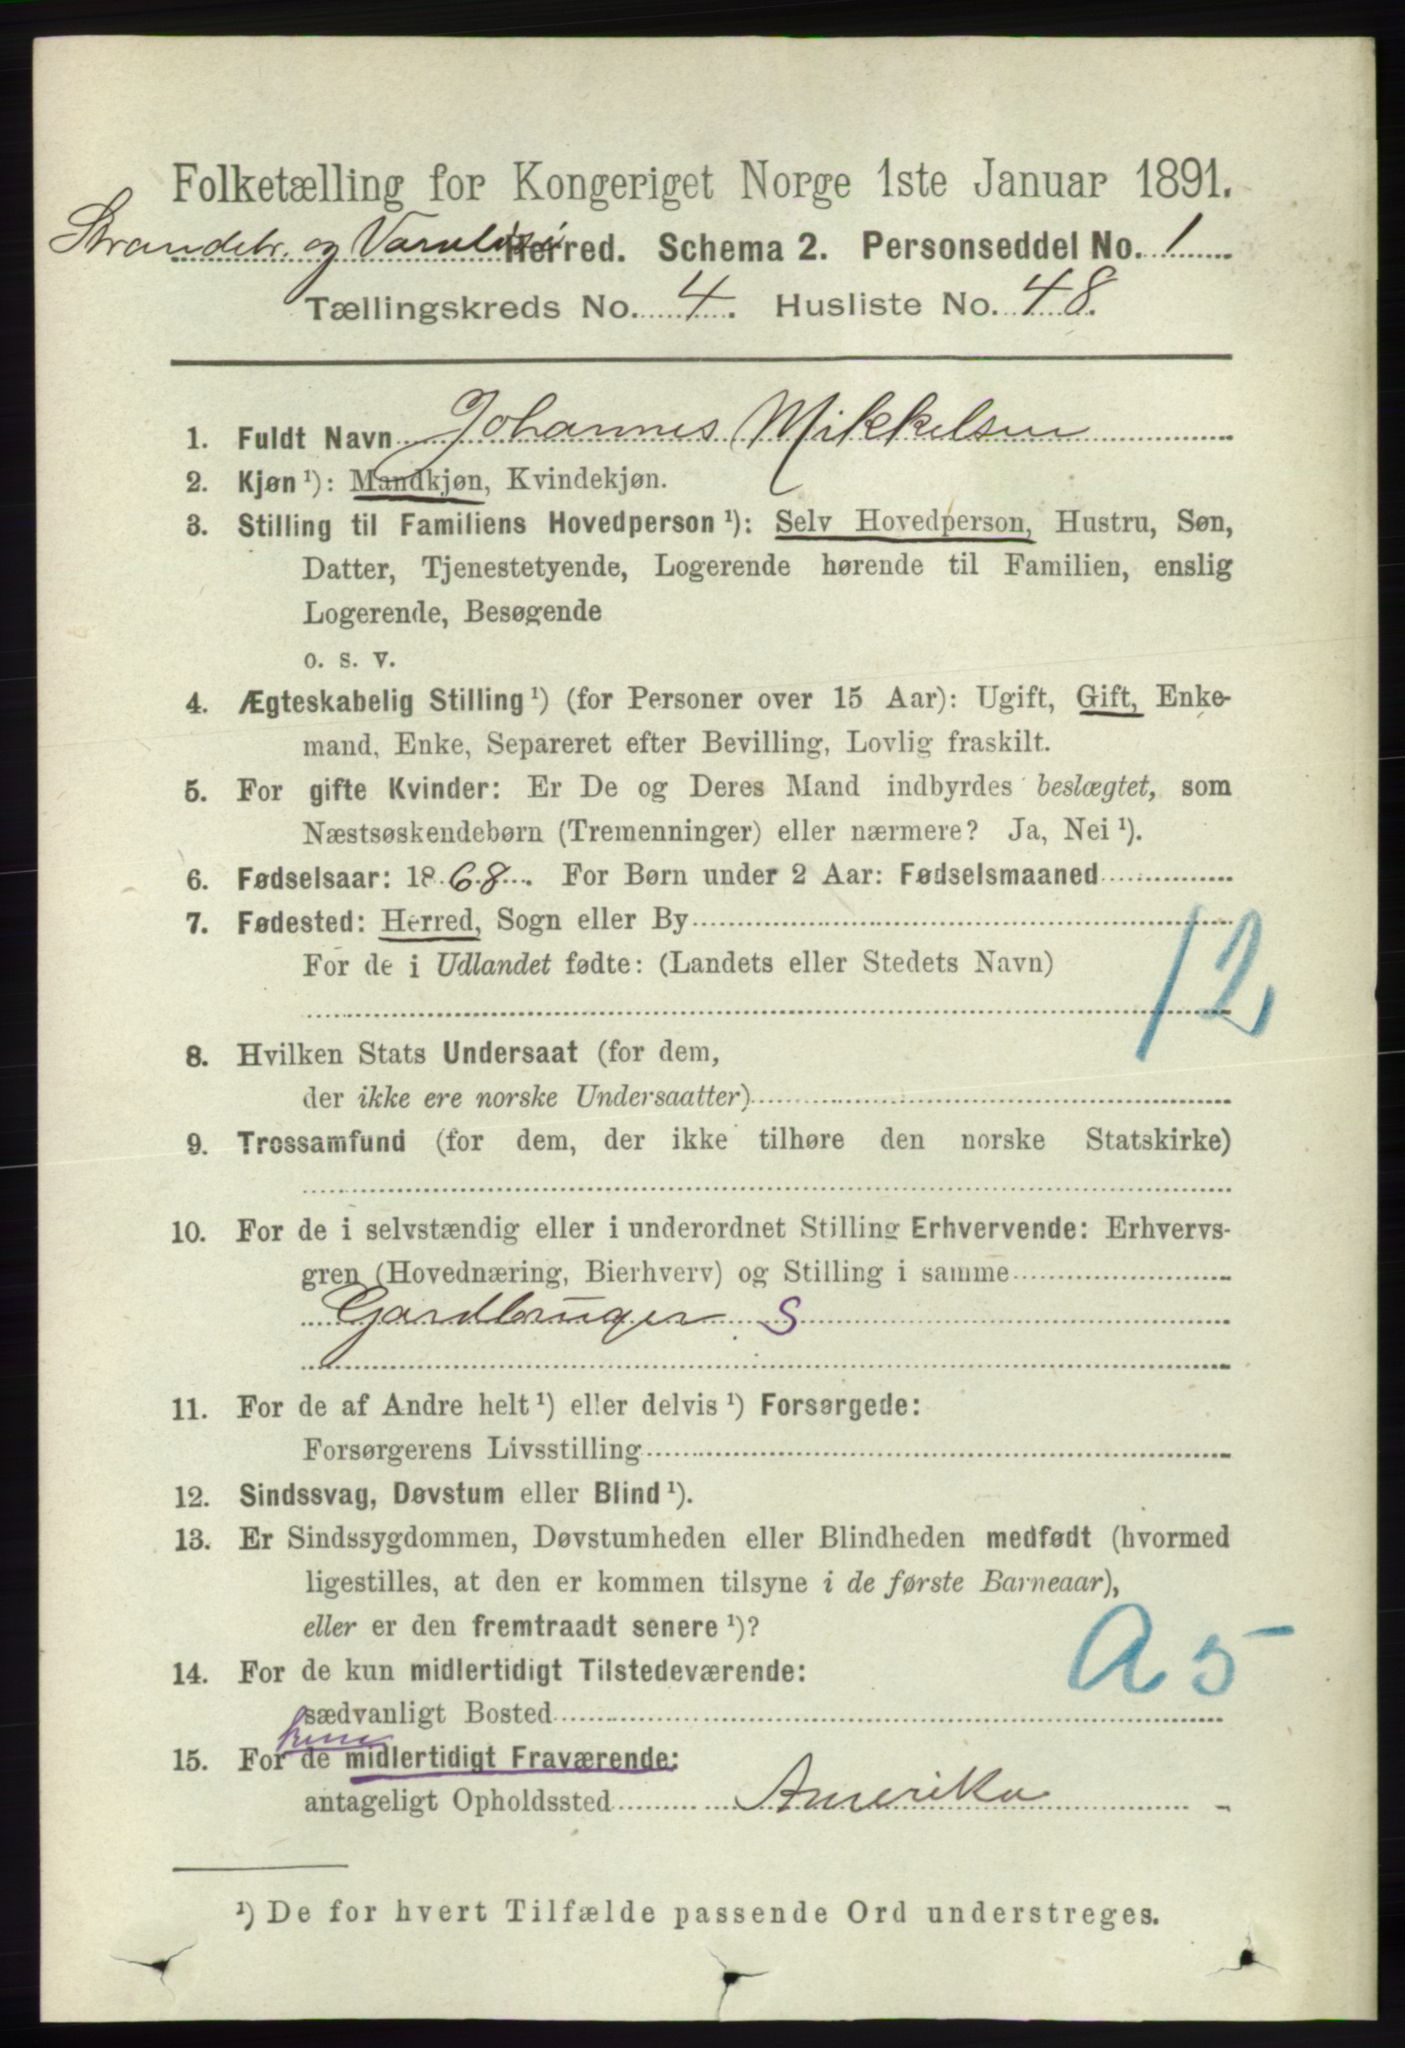 Folketælling for Kongeriget Norge 1ste Januar 1891.
Strandebr. og Varaldsø Herred. Schema 2. Personseddel No. 1
Tællingskreds No. 4. Husliste No. 48.
1. Fuldt Navn Johannes Mikkelsen
2. Kjøn ¹): Mandkjøn, Kvindekjøn.
3. Stilling til Familiens Hovedperson ¹): Selv Hovedperson, Hustru, Søn,
Datter, Tjenestetyende, Logerende hørende til Familien, enslig
Logerende, Besøgende
o. s. v.
4. Ægteskabelig Stilling ¹) (for Personer over 15 Aar): Ugift, Gift, Enke-
mand, Enke, Separeret efter Bevilling, Lovlig fraskilt.
5. For gifte Kvinder: Er De og Deres Mand indbyrdes beslægtet, som
Næstsøskendebørn (Tremenninger) eller nærmere? Ja, Nei ¹).
6. Fødselsaar: 1868. For Børn under 2 Aar: Fødselsmaaned
7. Fødested: Herred, Sogn eller By
For de i Udlandet fødte: (Landets eller Stedets Navn)
12
8. Hvilken Stats Undersaat (for dem,
der ikke ere norske Undersaatter)
9. Trossamfund (for dem, der ikke tilhøre den norske Statskirke)
10. For de i selvstændig eller i underordnet Stilling Erhvervende: Erhvervs-
gren (Hovednæring, Bierhverv) og Stilling i samme
Gardbruger S
11. For de af Andre helt ¹) eller delvis ¹) Forsørgede:
Forsørgerens Livsstilling
12. Sindssvag, Døvstum eller Blind ¹).
13. Er Sindssygdommen, Døvstumheden eller Blindheden medfødt (hvormed
ligestilles, at den er kommen tilsyne i de første Barneaar),
eller er den fremtraadt senere ¹)?
A 5
14. For de kun midlertidigt Tilstedeværende:
sædvanligt Bosted
15. For de midlertidigt Fraværende:
antageligt Opholdssted Amerika
¹) De for hvert Tilfælde passende Ord understreges.